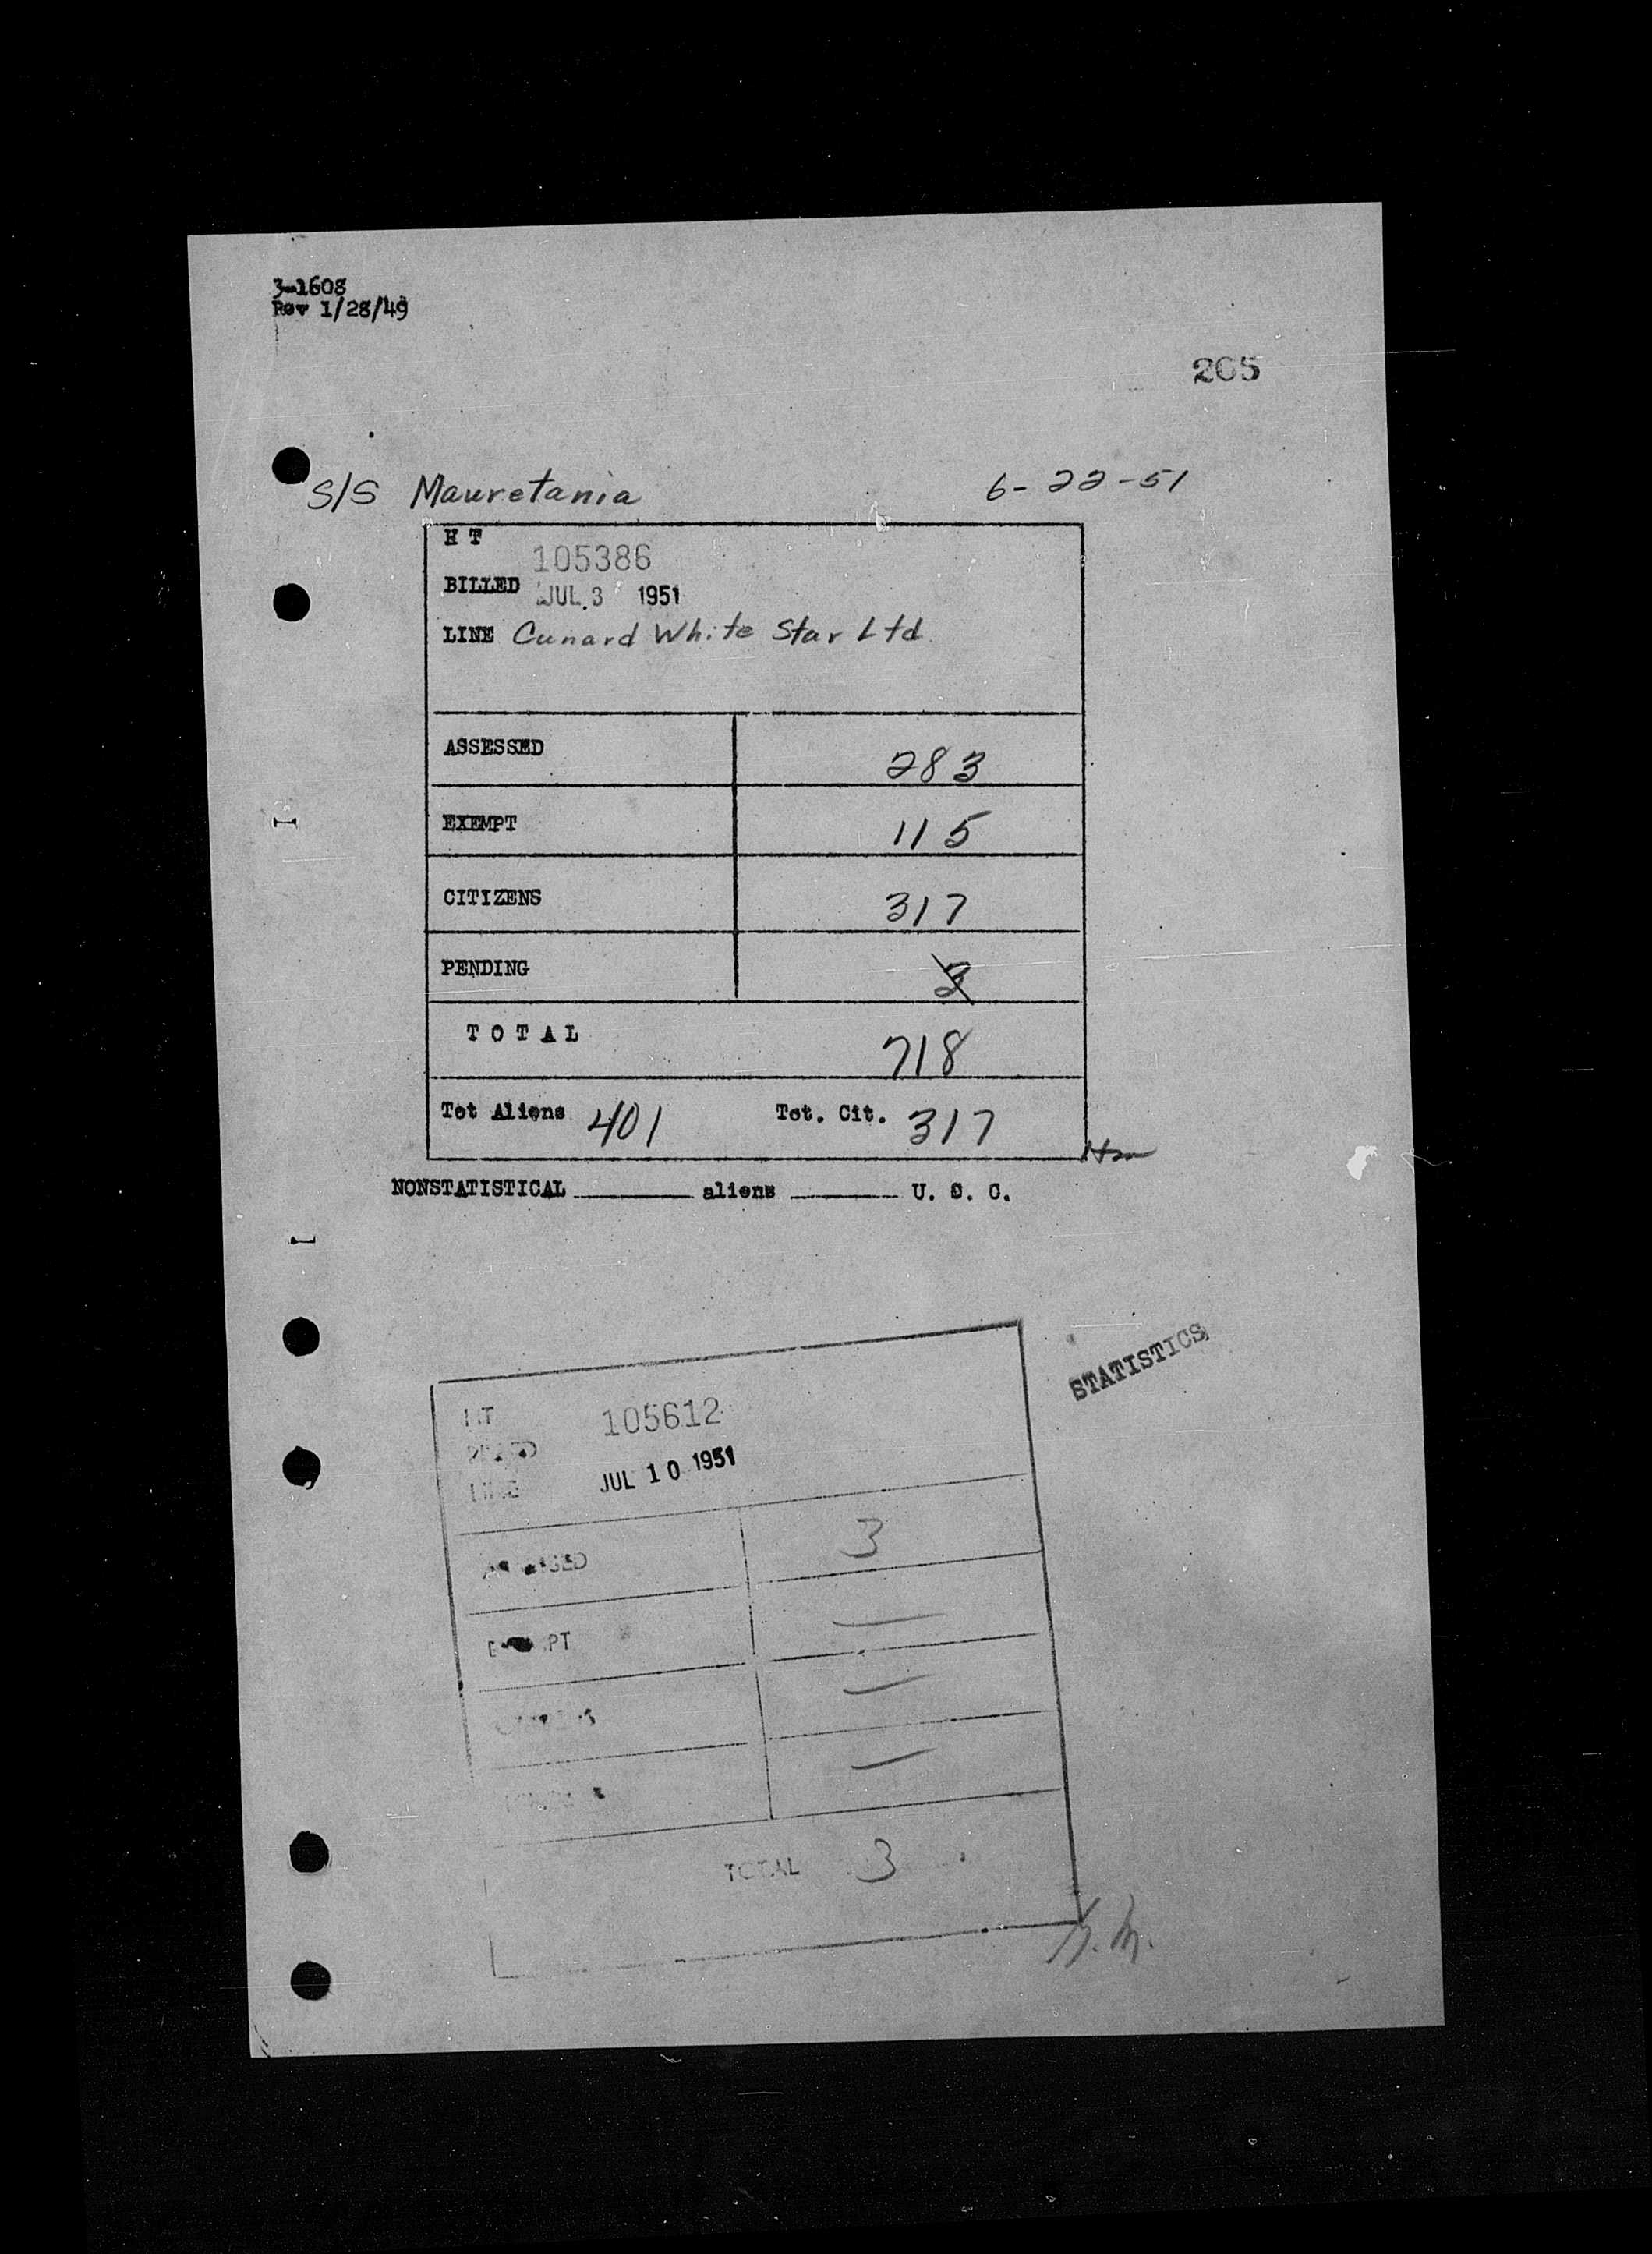 3-1608
Rev 1/28/49
205
S/S Mauretania 6-22-51
HT
105386
BILLED JUL 3 1951
LINE Cunard White Star Ltd
ASSESSED 283
EXEMPT 115
CITIZENS 317
PENDING 3
TOTAL 718
Tot Aliens 401 Tot. Cit. 317
NONSTATISTICAL aliens U. S. C.
STATISTICS
HT 105612
JUL 10 1951
LINE
3
TOTAL 3